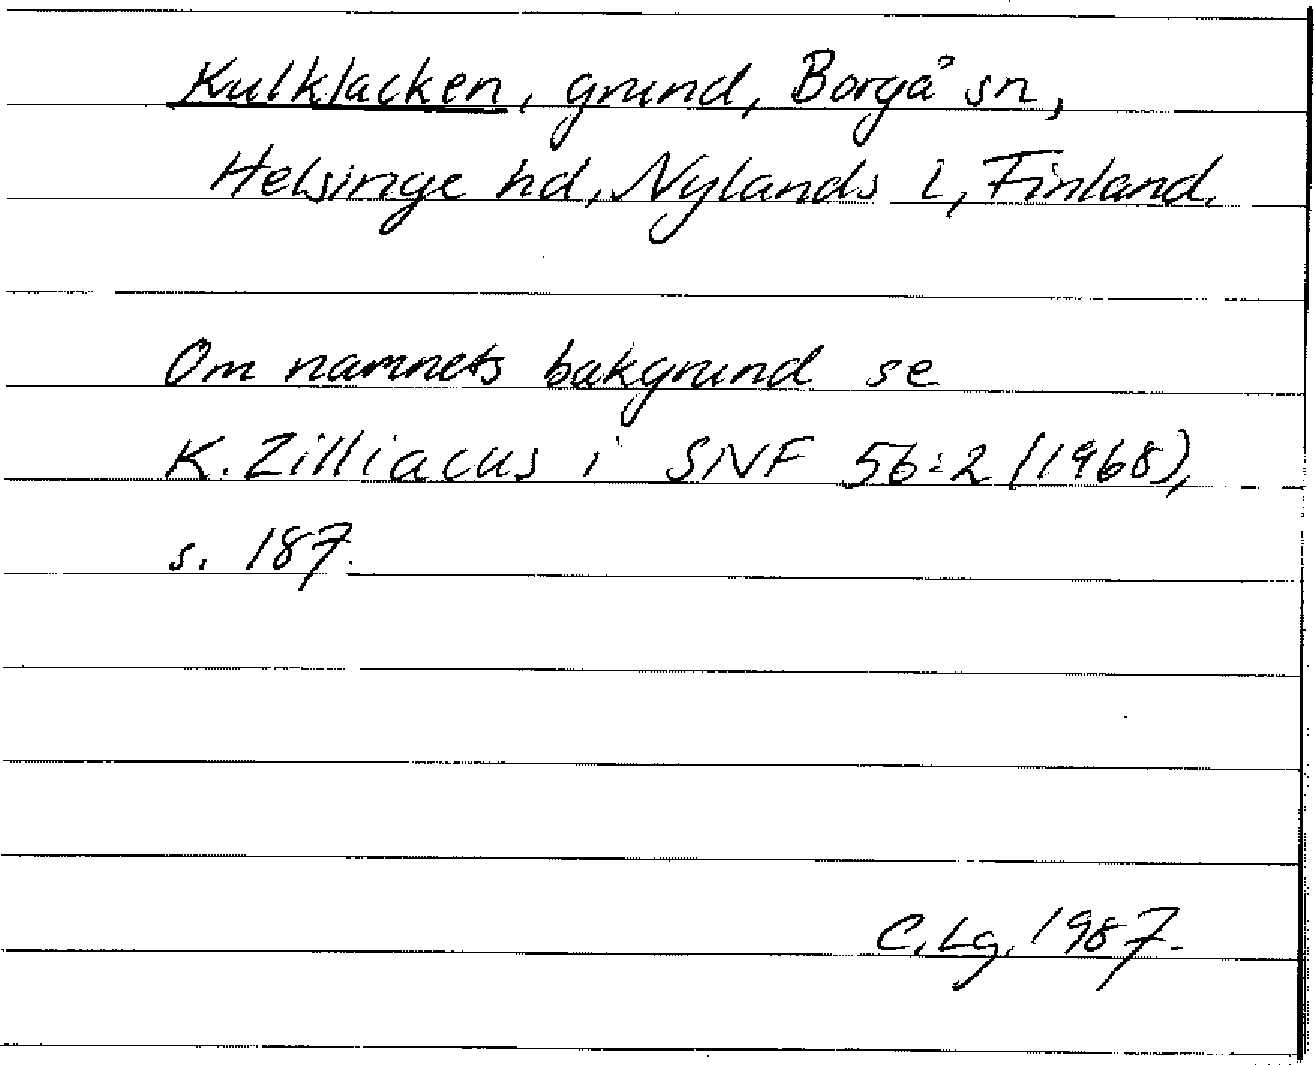 Kulklacken, grund, Borgå sn,
Helsinge hd, Nylands l, Finland.
Om namnets bakgrund se
K. Zilliacus i SNF 56:2 (1968),
s. 187.
C. Lg. 1987.